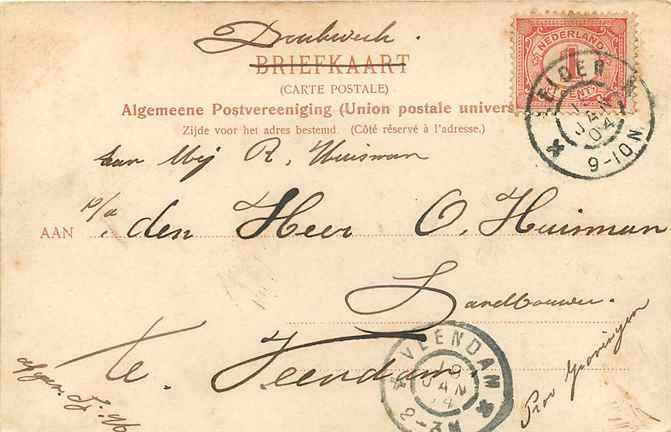 Drukwerk.
BRIEFKAART
(CARTE POSTALE)
Algemeene Postvereeniging (Union postale univers
Zijde voor het adres bestemd. (Côté réservé à l'adresse.)
NEDERLAND
1
CENT
HELDER
JAN
04
9-10N
aan Mej R. Huisman
p/a
AAN den Heer O. Huisman
Landbouwer.
te. Veendam
VEENDAM
JAN
04
2-3N
Prov Groningen